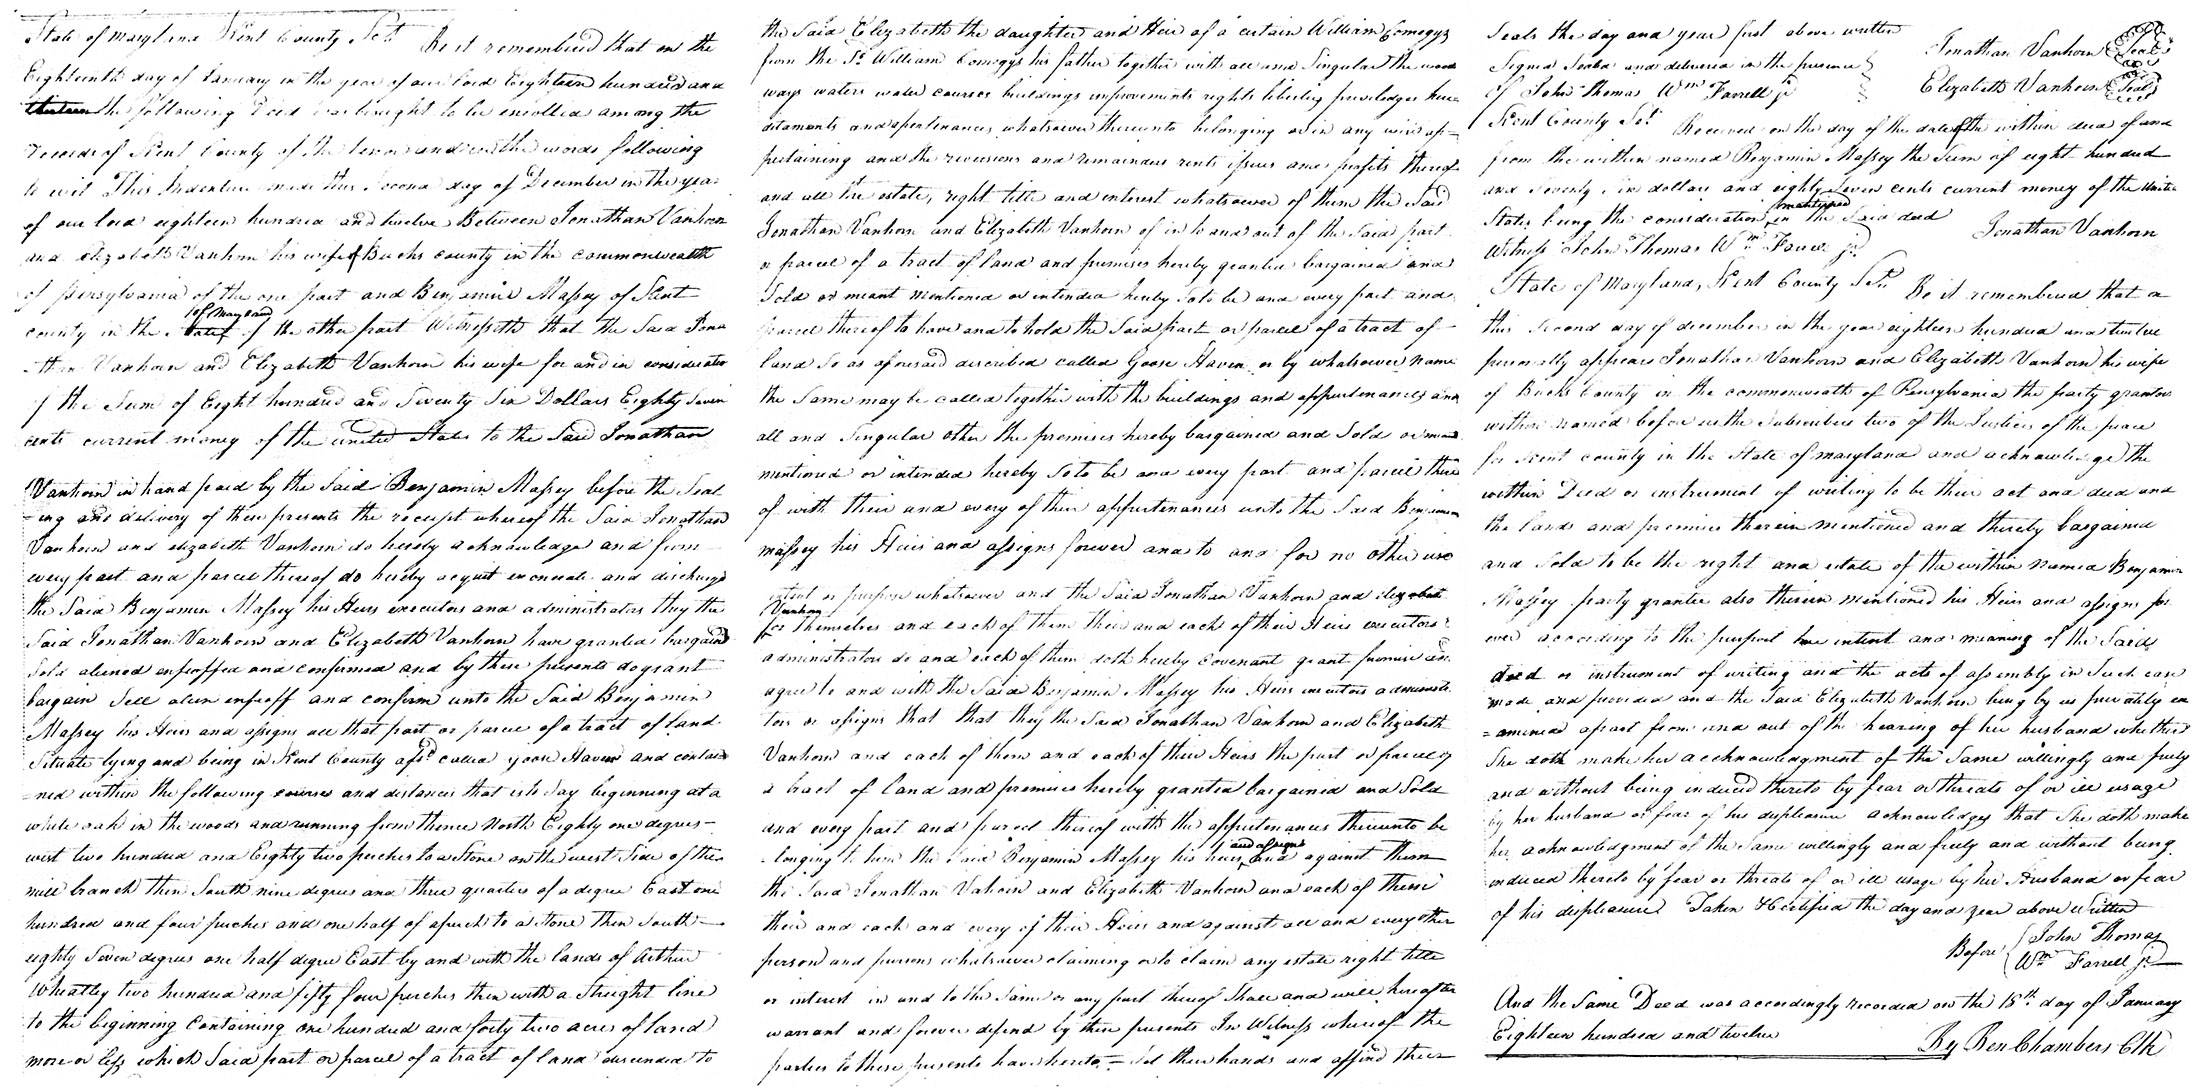 State of Maryland Kent County Sct. Be it remembered that on the
Eighteenth day of January in the year of our lord Eighteen hundred and
thirteen the following Deed was brought to be enrolled among the
records of Kent County of the tenor and in the words following
to wit This Indenture made this Second day of December in the year
of our lord eighteen hundred and twelve Between Jonathan Vanhorn
and elizabeth Vanhorn his wife of Bucks county in the commonwealth
of pensylvania of the one part and Benjamin Massey of Kent
county in the State of Maryland of the other part Witnesseth that the Said Jona
-than Vanhorn and Elizabeth Vanhorn his wife for and in consideration
of the Sum of Eight hundred and Seventy Six Dollars Eighty Seven
cents current money of the united States to the Said Jonathan
Vanhorn in hand paid by the Said Benjamin Massey before the Seal
-ing and delivery of these presents the receipt whereof the Said Jonathan
Vanhorn and elizabeth Vanhorn do hereby acknowledge and from
every part and parcel thereof do hereby acquit exonerate and discharge
the Said Benjamin Massey his Heirs executors and administrators they the
Said Jonathan Vanhorn and Elizabeth Vanhorn have granted bargained
Sold aliened enfeoffed and confirmed and by these presents do grant
bargain Sell alien enfeoff and confirm unto the Said Benjamin
Massey his Heirs and assigns all that part or parcel of a tract of land
Situate lying and being in Kent County afsd. called goose Haven and contai
-ned within the following courses and distances that is to Say beginning at a
white oak in the woods and running from thence North Eighty one degrees
west two hundred and Eighty two perches to a Stone on the west Side of the
mill branch then South nine degrees and three quarters of a degree East one
hundred and four perches and one half of a perch to a Stone then South
eighty Seven degrees one half degree East by and with the lands of Arthur
Wheatley two hundred and fifty four perches then with a Streight line
to the beginning Containing one hundred and forty two acres of land
more or less which Said part or parcel of a tract of land descended to
the Said Elizabeth the daughter and Heir of a certain William Comegys
from the Sd. William Comegys his father together with all and Singular the woods
ways waters water courses buildings improvements rights liberties priviledges here
ditaments and apertenances whatsoever thereunto belonging or in any wise ap=
pertaining and the reversions and remainders rents issues and profits thereof
and all the estate, right title and interest whatsoever of them the Said
Jonathan Vanhorn and Elizabeth Vanhorn of in to and out of the Said part
or parcel of a tract of land and premises hereby granted bargained and
Sold or meant mentioned or intended hereby So to be and every part and
parcel thereof to have and to hold the Said part or parcel of a tract of
land So as aforesaid described called Goose Haven or by whatsoever name
the Same may be called together with the buildings and appurtenances and
all and Singular other the premises hereby bargained and Sold or meant
mentioned or intended hereby So to be and every part and parcel there
of with their and every of their appurtenances unto the Said Benjamin
massey his Heirs and assigns forever and to and for no other use
intent or purpose whatsoever and the Said Jonathan Vanhorn and elizabeth
Vanhorn for themselves and each of them their and each of their Heirs executors
administrators do and each of them doth hereby Covenant grant promise and
agree to and with the Said Benjamin Massey his Heirs executors administra
tors or assigns that that they the Said Jonathan Vanhorn and Elizabeth
Vanhorn and each of them and each of their Heirs the part or parcel of
a tract of land and premises hereby granted bargained and Sold
and every part and parcel thereof with the appurtenances thereunto be
-longing to him the Said Benjamin Massey his heirs and assigns and against them
the Said Jonathan Vahorn and Elizabeth Vanhorn and each of them
their and each and every of their Heirs and against all and every other
person and persons whatsoever claiming or to claim any estate right title
or interest in and to the Same or any part thereof Shall and will hereafter
warrant and forever defend by these presents In Witness whereof the
parties to these presents have hereto = Set their hands and affixed their
Seals the day and year first above written
Signed Sealed and delivered in the presence
of John Thomas Wm Farrell jr
Jonathan Vanhorn Seal
Elizabeth Vanhorn Seal
Kent County Sct. Received on the day of the date of the within deed of and
from the within named Benjamin Massey the Sum of eight hundred
and Seventy Six dollars and eighty Seven cents current money of the United
States being the consideration mentioned in the Said deed
Jonathan Vanhorn
Witness John Thomas Wm Farrell jr.
State of Maryland, Kent County Sct. Be it remembered that on
this Second day of december in the year eighteen hundred and twelve
personally appears Jonathan Vanhorn and Elizabeth Vanhorn his wife
of Bucks County in the commonwealth of Pensylvania the party grantors
within named before us the Subscribers two of the Justices of the peace
for Kent county in the State of maryland and acknowledge the
within Deed or instrument of writing to be their act and deed and
the lands and premises therein mentioned and thereby bargained
and Sold to be the right and estate of the within named Benjamin
Massey party grantee also therein mentioned his Heirs and assigns for
ever according to the purport true intent and meaning of the Said
deed or instrument of writing and the acts of assembly in Such case
made and provided and the Said Elizabeth Vanhorn being by us privately ex
=amined apart from and out of the hearing of her husband whether
She doth make her acknowledgment of the Same willingly and freely
and without being induced thereto by fear or threats of or ill usage
by her husband or fear of his displeasure acknowledges that She doth make
her acknowledgment of the Same willingly and freely and without being
induced thereto by fear or threats of or ill usage by her Husband or fear
of his displeasure Taken & Certified the day and year above Written
Before John Thomas
Wm Farrell jr
And the Same Deed was accordingly recorded on the 18th day of January
Eighteen hundred and twelve
By Ben Chambers Clk